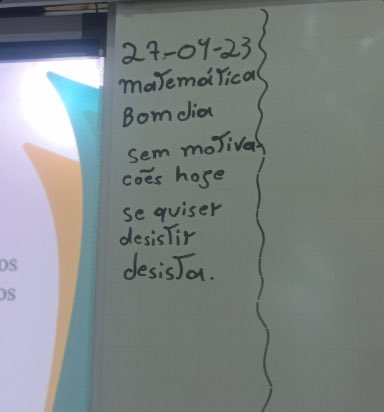 27-04-23
matemática
Bom dia
sem motiva
cões hoje
se quiser
desistir
desista.
os
os